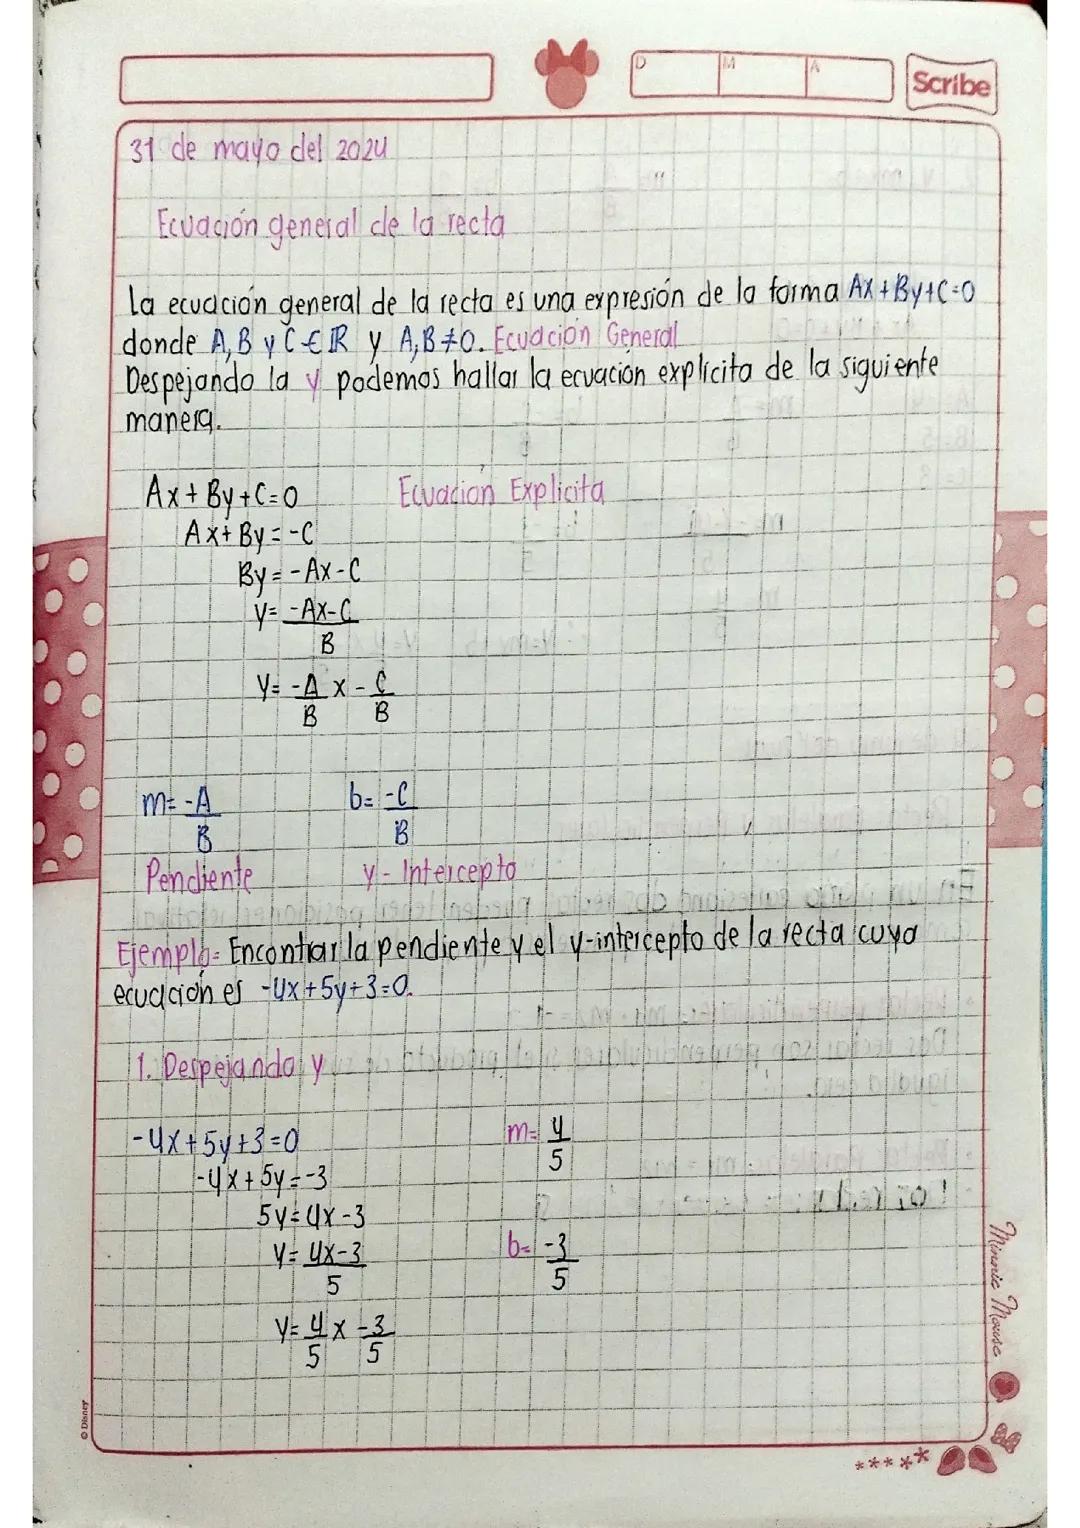 D M A
Scribe
31 de mayo del 2024
Ecuación general de la recta
La ecuación general de la recta es una expresión de la forma Ax+By+C=0
donde A, B y C ∈ ℝ y A,B≠0. Ecuación General
Despejando la y podemos hallar la ecuación explicita de la siguiente
manera.
Ax+By+C=0 Ecuacion Explicita
Ax+By=-C
By=-Ax-C
y= -Ax-C
B
y= -A x - C
B B
m= -A b= -C
B B
Pendiente y-Intercepto
Ejemplo= Encontrar la pendiente y el y-intercepto de la recta cuya
ecuación es -4x+5y+3=0.
1. Despejando y
-4x+5y+3=0 m= 4
-4x+5y=-3 5
5y=4x-3
y= 4x-3 b= -3
5 5
y= 4 x -3
5 5
Minnie Mouse
© Disney